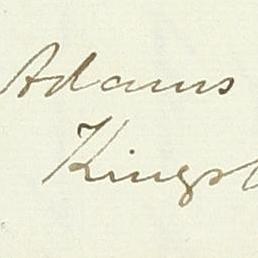 Adams
Kings